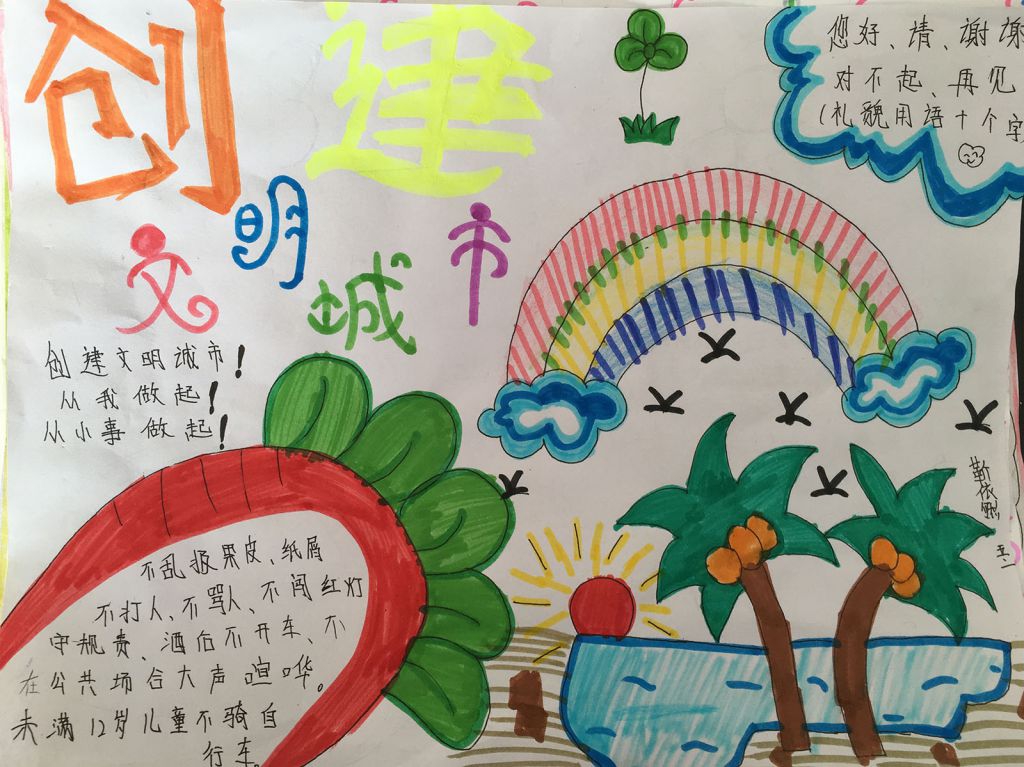 创建
文明城市
您好、请、谢谢
对不起、再见
(礼貌用语十个字
创建文明城市!
从我做起!
从小事做起!
不乱扱果皮、纸屑
不打人、不骂人、不闯红灯
守规责、酒后不开车、不
在公共场合大声喧哗。
未满12岁儿童不骑自
行车。
五一